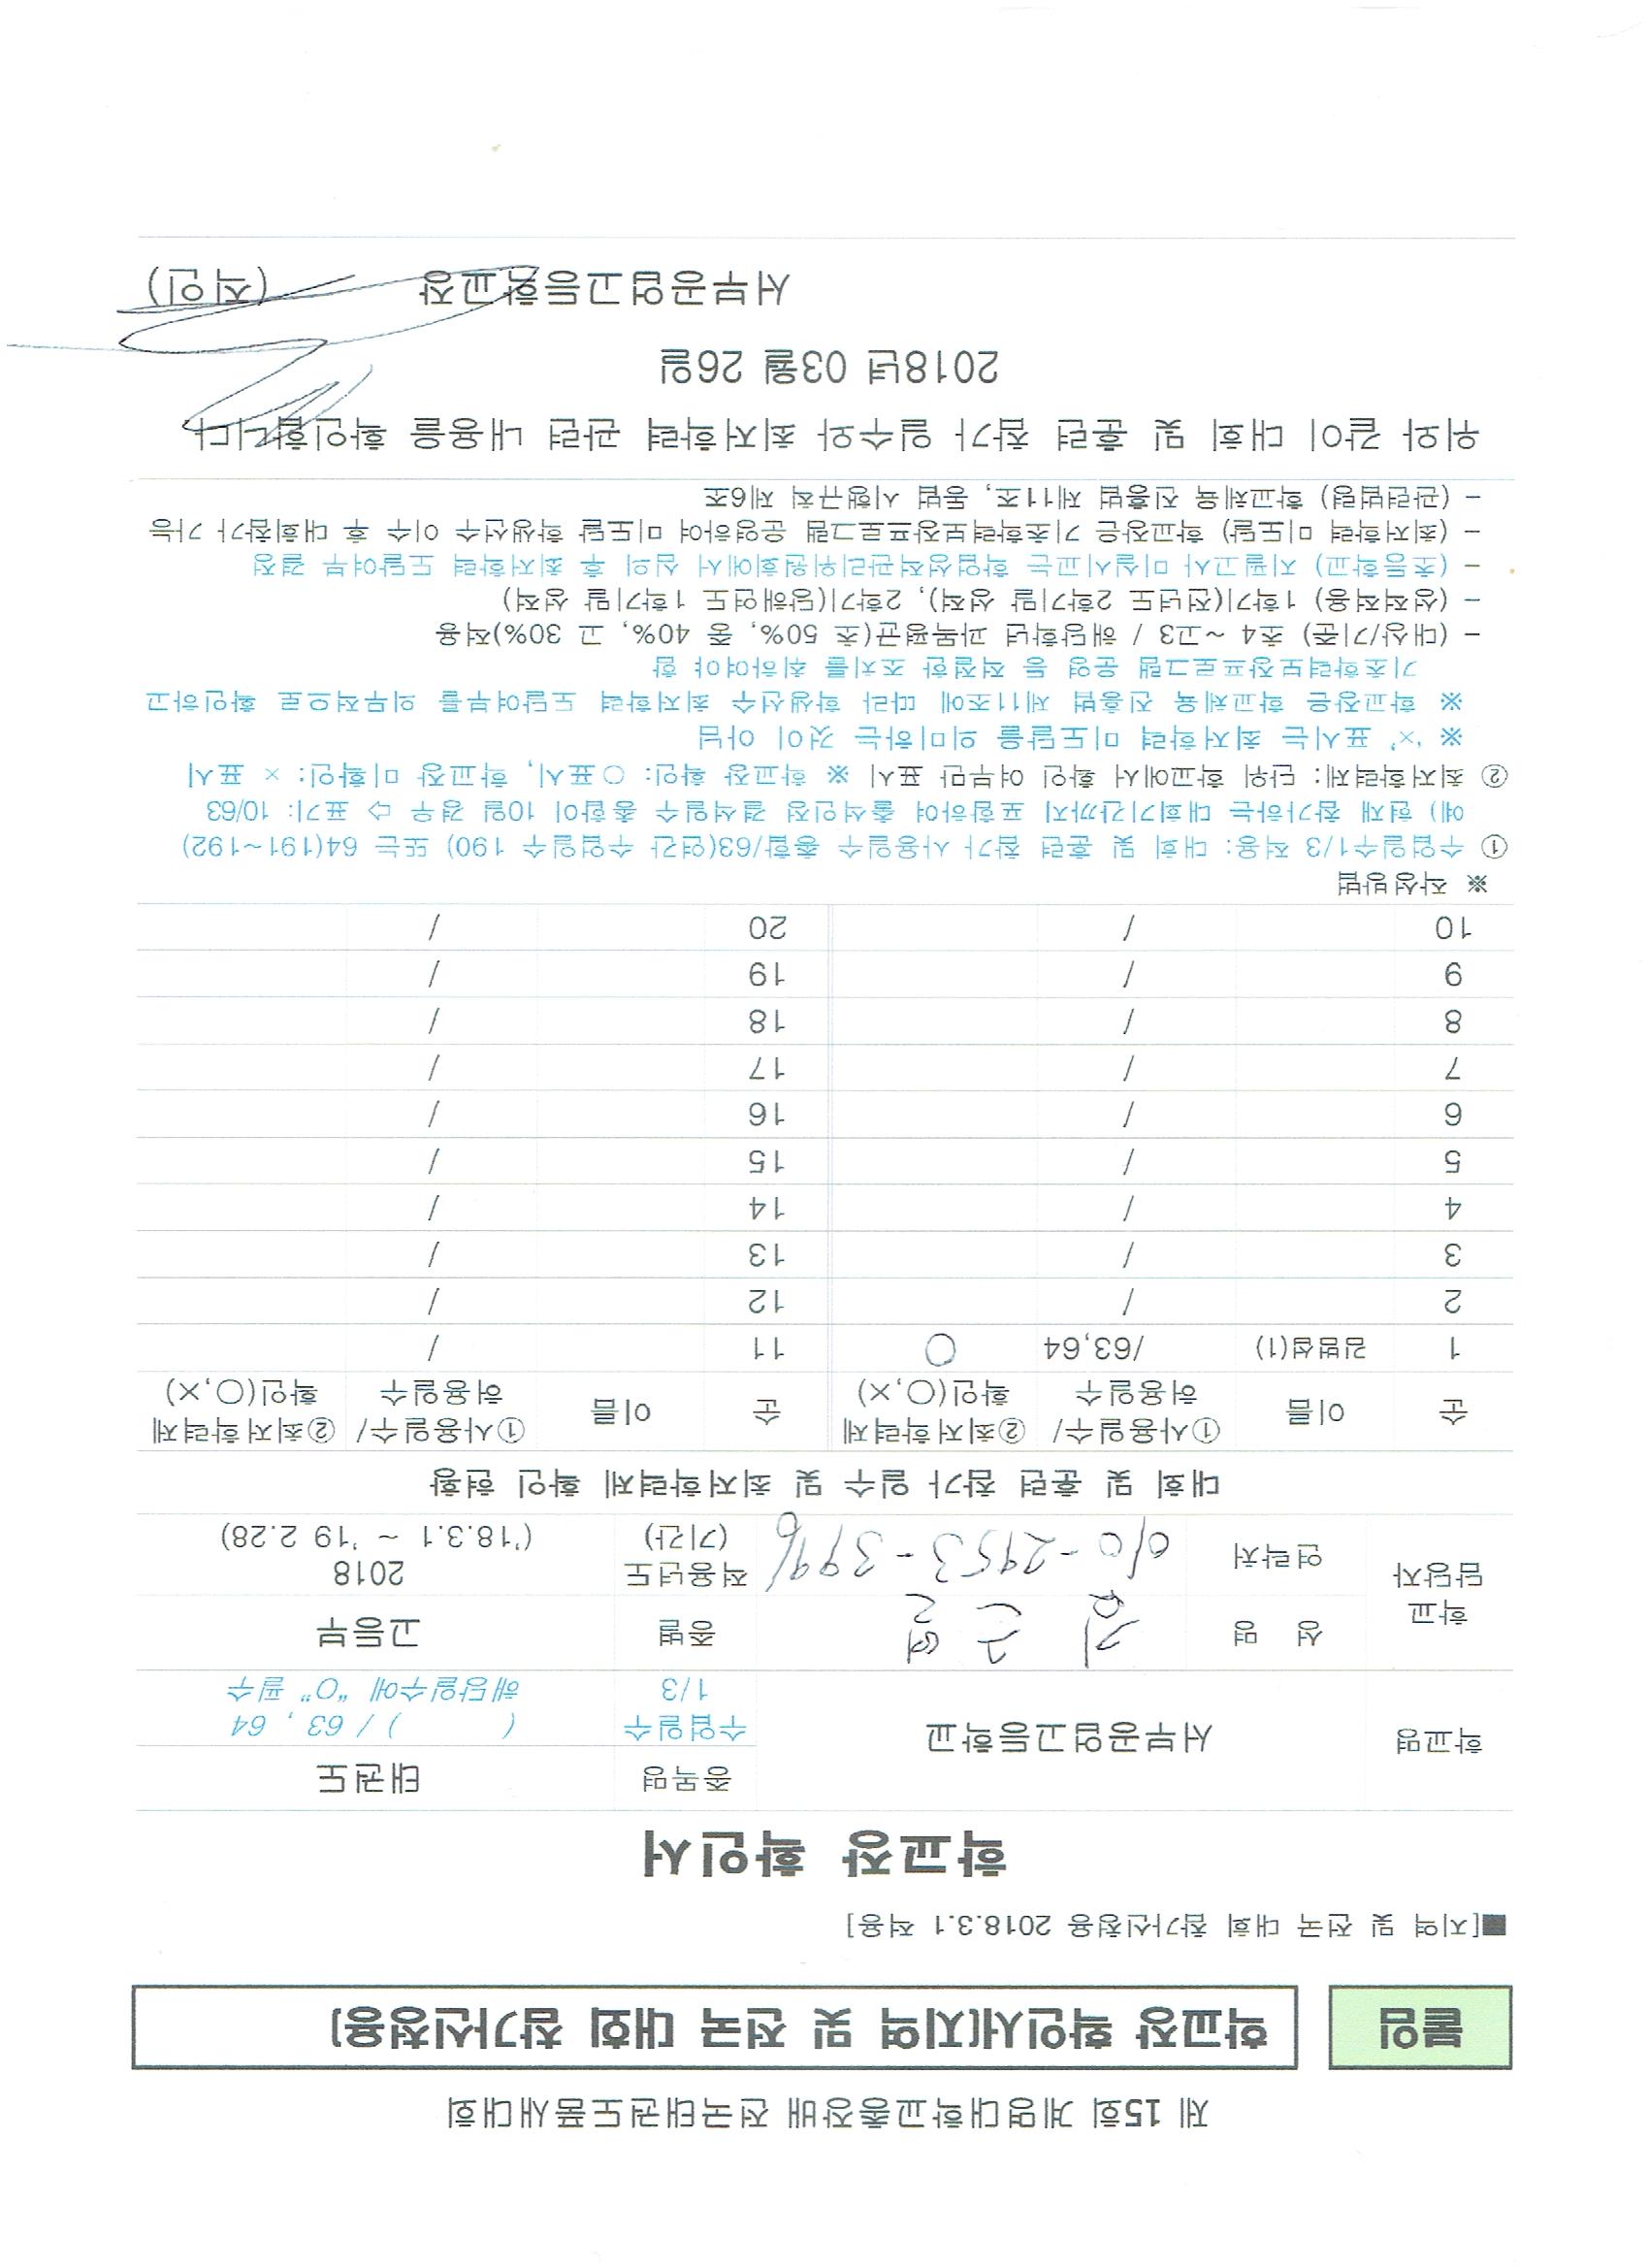 제 15회 계명대학교총장배 전국태권도품새대회
붙임
학교장 확인서(지역 및 전국 대회 참가신청용)
■[지역 및 전국 대회 참가신청용 2018.3.1 적용]
학교장 확인서
학교명 서부공업고등학교 종목명 태권도
수업일수 1/3 ( ) / 63 , 64
해당일수에 "O" 필수
학교 담당자 성 명 종별 고등부
연락처 010-2953-3996 적용년도 (기간) 2018
('18.3.1 ~ '19 2.28)
대회 및 훈련 참가 일수 및 최저학력제 확인 현황
순 이름 ①사용일수/허용일수 ②최저학력제 확인(○,×) 순 이름 ①사용일수/허용일수 ②최저학력제 확인(○,×)
1 김범섭(1) /63,64 ○ 11 /
2 / 12 /
3 / 13 /
4 / 14 /
5 / 15 /
6 / 16 /
7 / 17 /
8 / 18 /
9 / 19 /
10 / 20 /
※ 작성방법
① 수업일수1/3 적용: 대회 및 훈련 참가 사용일수 총합/63(연간 수업일수 190) 또는 64(191~192)
예) 현재 참가하는 대회기간까지 포함하여 출석인정 결석일수 총합이 10일 경우 ⇨ 표기: 10/63
② 최저학력제: 단위 학교에서 확인 여부만 표시 ※ 학교장 확인: ○표시, 학교장 미확인: × 표시
※ '×' 표시는 최저학력 미도달을 의미하는 것이 아님
※ 학교장은 학교체육 진흥법 제11조에 따라 학생선수 최저학력 도달여부를 의무적으로 확인하고
기초학력보장프로그램 운영 등 적절한 조치를 취하여야 함
- (대상/기준) 초4 ~고3 / 해당학년 과목평균(초 50%, 중 40%, 고 30%)적용
- (성적적용) 1학기(전년도 2학기말 성적), 2학기(당해연도 1학기말 성적)
- (초등학교) 지필고사 미실시교는 학업성적관리위원회에서 심의 후 최저학력 도달여부 결정
- (최저학력 미도달) 학교장은 기초학력보장프로그램 운영하여 미도달 학생선수 이수 후 대회참가 가능
- (관련법령) 학교체육 진흥법 제11조, 동법 시행규칙 제6조
위와 같이 대회 및 훈련 참가 일수와 최저학력 관련 내용을 확인합니다
2018년 03월 26일
서부공업고등학교장 (직인)